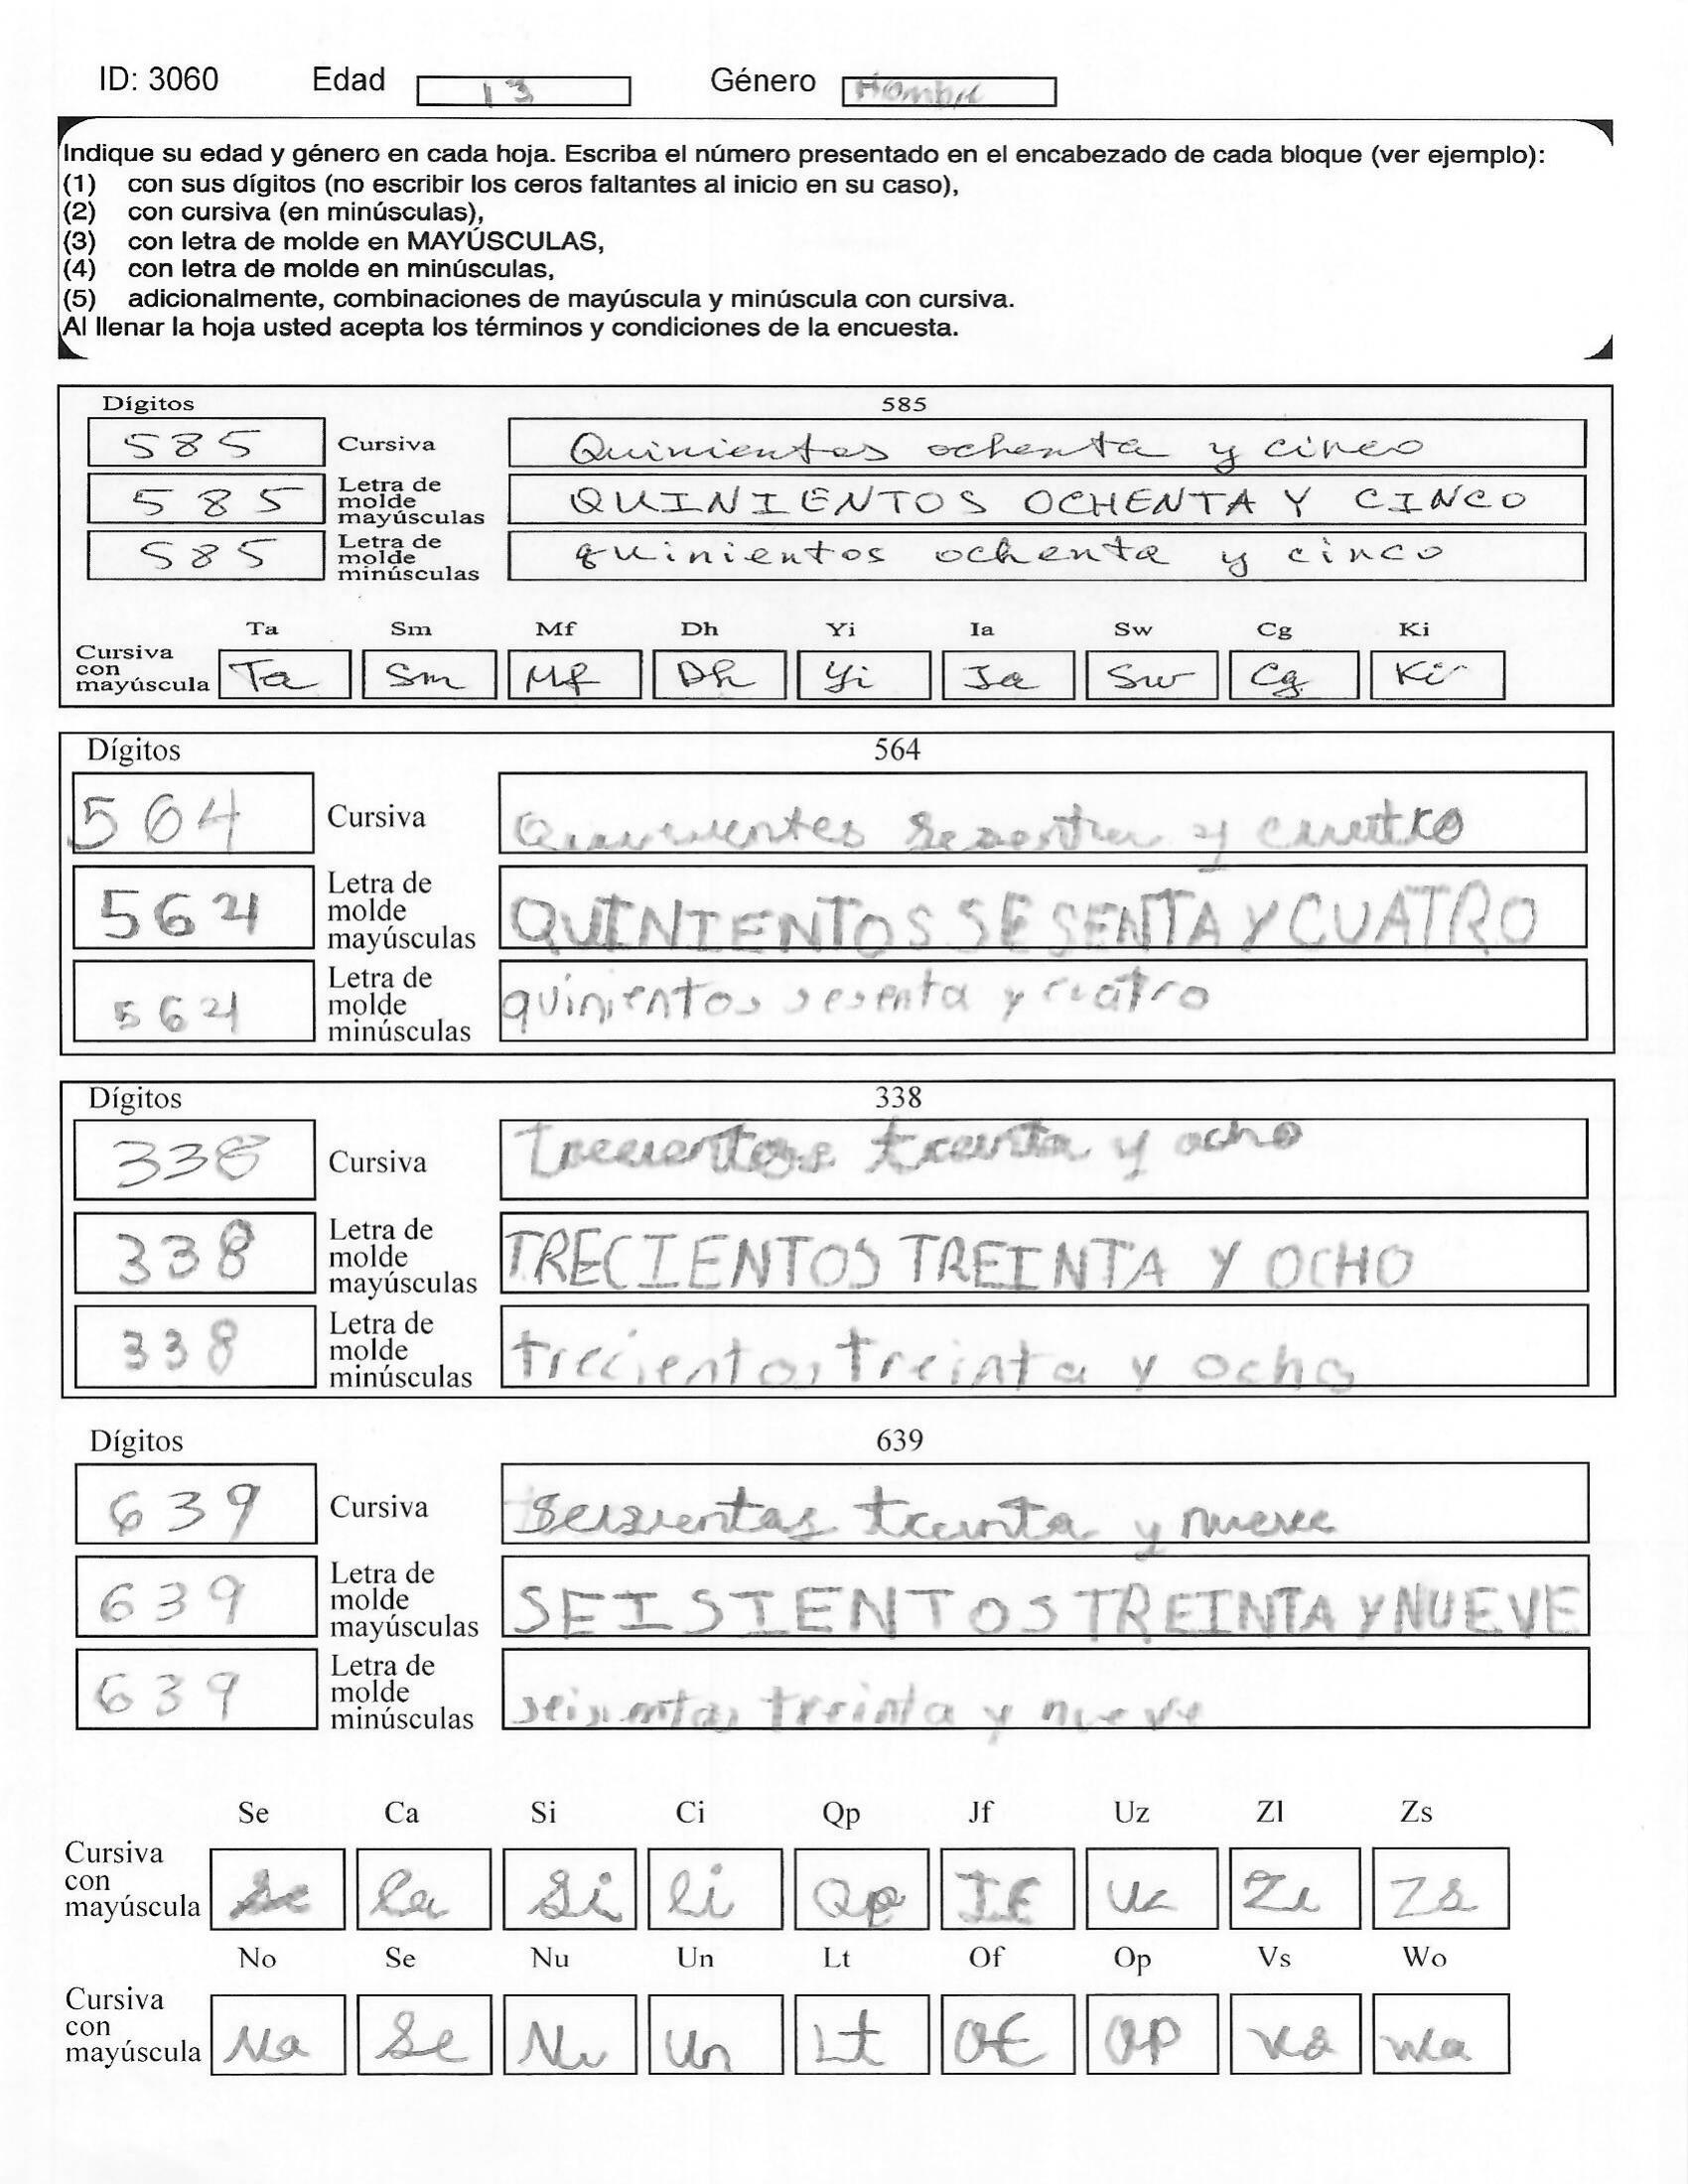 ID: 3060 Edad 13 Género Hombre
Indique su edad y género en cada hoja. Escriba el número presentado en el encabezado de cada bloque (ver ejemplo):
(1) con sus dígitos (no escribir los ceros faltantes al inicio en su caso),
(2) con cursiva (en minúsculas),
(3) con letra de molde en MAYÚSCULAS,
(4) con letra de molde en minúsculas,
(5) adicionalmente, combinaciones de mayúscula y minúscula con cursiva.
Al llenar la hoja usted acepta los términos y condiciones de la encuesta.
Dígitos 585
585 Cursiva Quinientos ochenta y cinco
585 Letra de molde mayúsculas QUINIENTOS OCHENTA Y CINCO
585 Letra de molde minúsculas quinientos ochenta y cinco
Ta Sm Mf Dh Yi Ia Sw Cg Ki
Cursiva con mayúscula Ta Sm Mf Dh Yi Ia Sw Cg Ki
Dígitos 564
564 Cursiva y cuatro
564 Letra de molde mayúsculas QUINIENTOS SESENTA Y CUATRO
564 Letra de molde minúsculas quinientos sesenta y cuatro
Dígitos 338
338 Cursiva treinta y ocho
338 Letra de molde mayúsculas TRECIENTOS TREINTA Y OCHO
338 Letra de molde minúsculas trecientos treinta y ocho
Dígitos 639
639 Cursiva treinta y nueve
639 Letra de molde mayúsculas SEISIENTOS TREINTA Y NUEVE
639 Letra de molde minúsculas treinta y nueve
Se Ca Si Ci Qp Jf Uz Zl Zs
Cursiva con mayúscula Se Ca Si Ci Qp Uz Zl Zs
No Se Nu Un Lt Of Op Vs Wo
Cursiva con mayúscula No Se Nu Un Lt Of Op Vs Wo